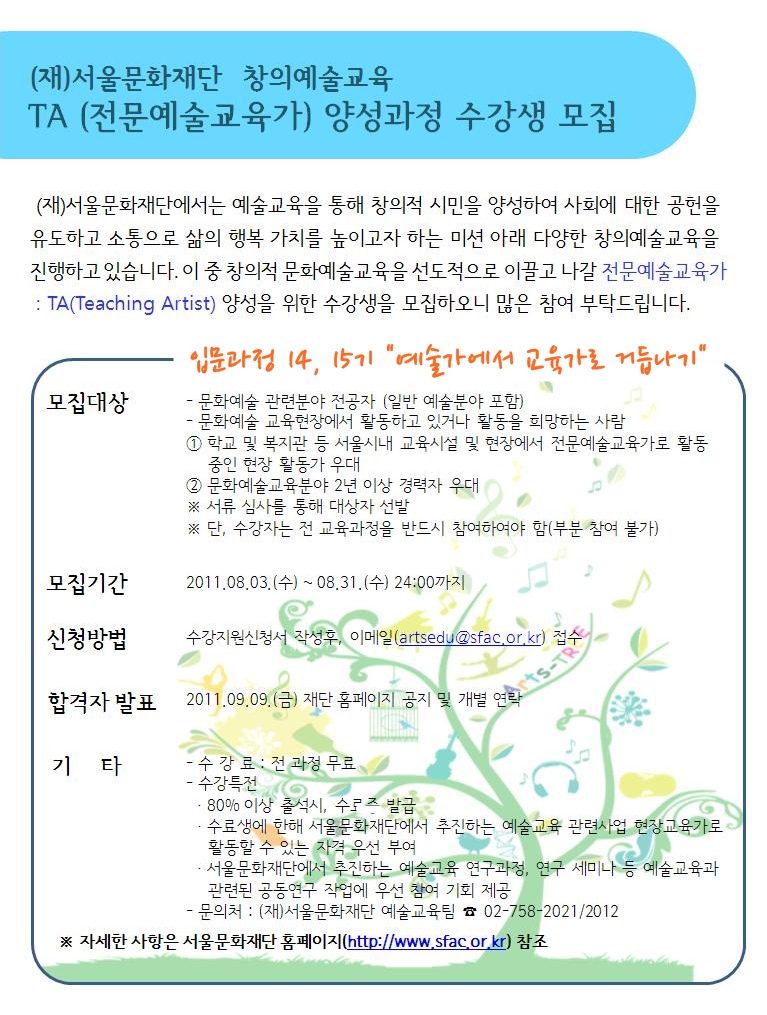 (재)서울문화재단 창의예술교육
TA (전문예술교육가) 양성과정 수강생 모집
(재)서울문화재단에서는 예술교육을 통해 창의적 시민을 양성하여 사회에 대한 공헌을
유도하고 소통으로 삶의 행복 가치를 높이고자 하는 미션 아래 다양한 창의예술교육을
진행하고 있습니다. 이 중 창의적 문화예술교육을 선도적으로 이끌고 나갈 전문예술교육가
: TA(Teaching Artist) 양성을 위한 수강생을 모집하오니 많은 참여 부탁드립니다.
입문과정 14, 15기 "예술가에서 교육가로 거듭나기"
모집대상
- 문화예술 관련분야 전공자 (일반 예술분야 포함)
- 문화예술 교육현장에서 활동하고 있거나 활동을 희망하는 사람
① 학교 및 복지관 등 서울시내 교육시설 및 현장에서 전문예술교육가로 활동
중인 현장 활동가 우대
② 문화예술교육분야 2년 이상 경력자 우대
※ 서류 심사를 통해 대상자 선발
※ 단, 수강자는 전 교육과정을 반드시 참여하여야 함(부분 참여 불가)
모집기간
2011.08.03.(수) ~ 08.31.(수) 24:00까지
신청방법
수강지원신청서 작성후, 이메일(artsedu@sfac.or.kr) 접수
Arts-TREE
합격자 발표
2011.09.09.(금) 재단 홈페이지 공지 및 개별 연락
기 타
- 수 강 료 : 전 과정 무료
- 수강특전
· 80% 이상 출석시, 발급
· 수료생에 한해 서울문화재단에서 추진하는 예술교육 관련사업 현장교육가로
활동할 수 있는 자격 우선 부여
· 서울문화재단에서 추진하는 예술교육 연구과정, 연구 세미나 등 예술교육과
관련된 공동연구 작업에 우선 참여 기회 제공
- 문의처 : (재)서울문화재단 예술교육팀 ☎ 02-758-2021/2012
※ 자세한 사항은 서울문화재단 홈페이지(http://www.sfac.or.kr) 참조